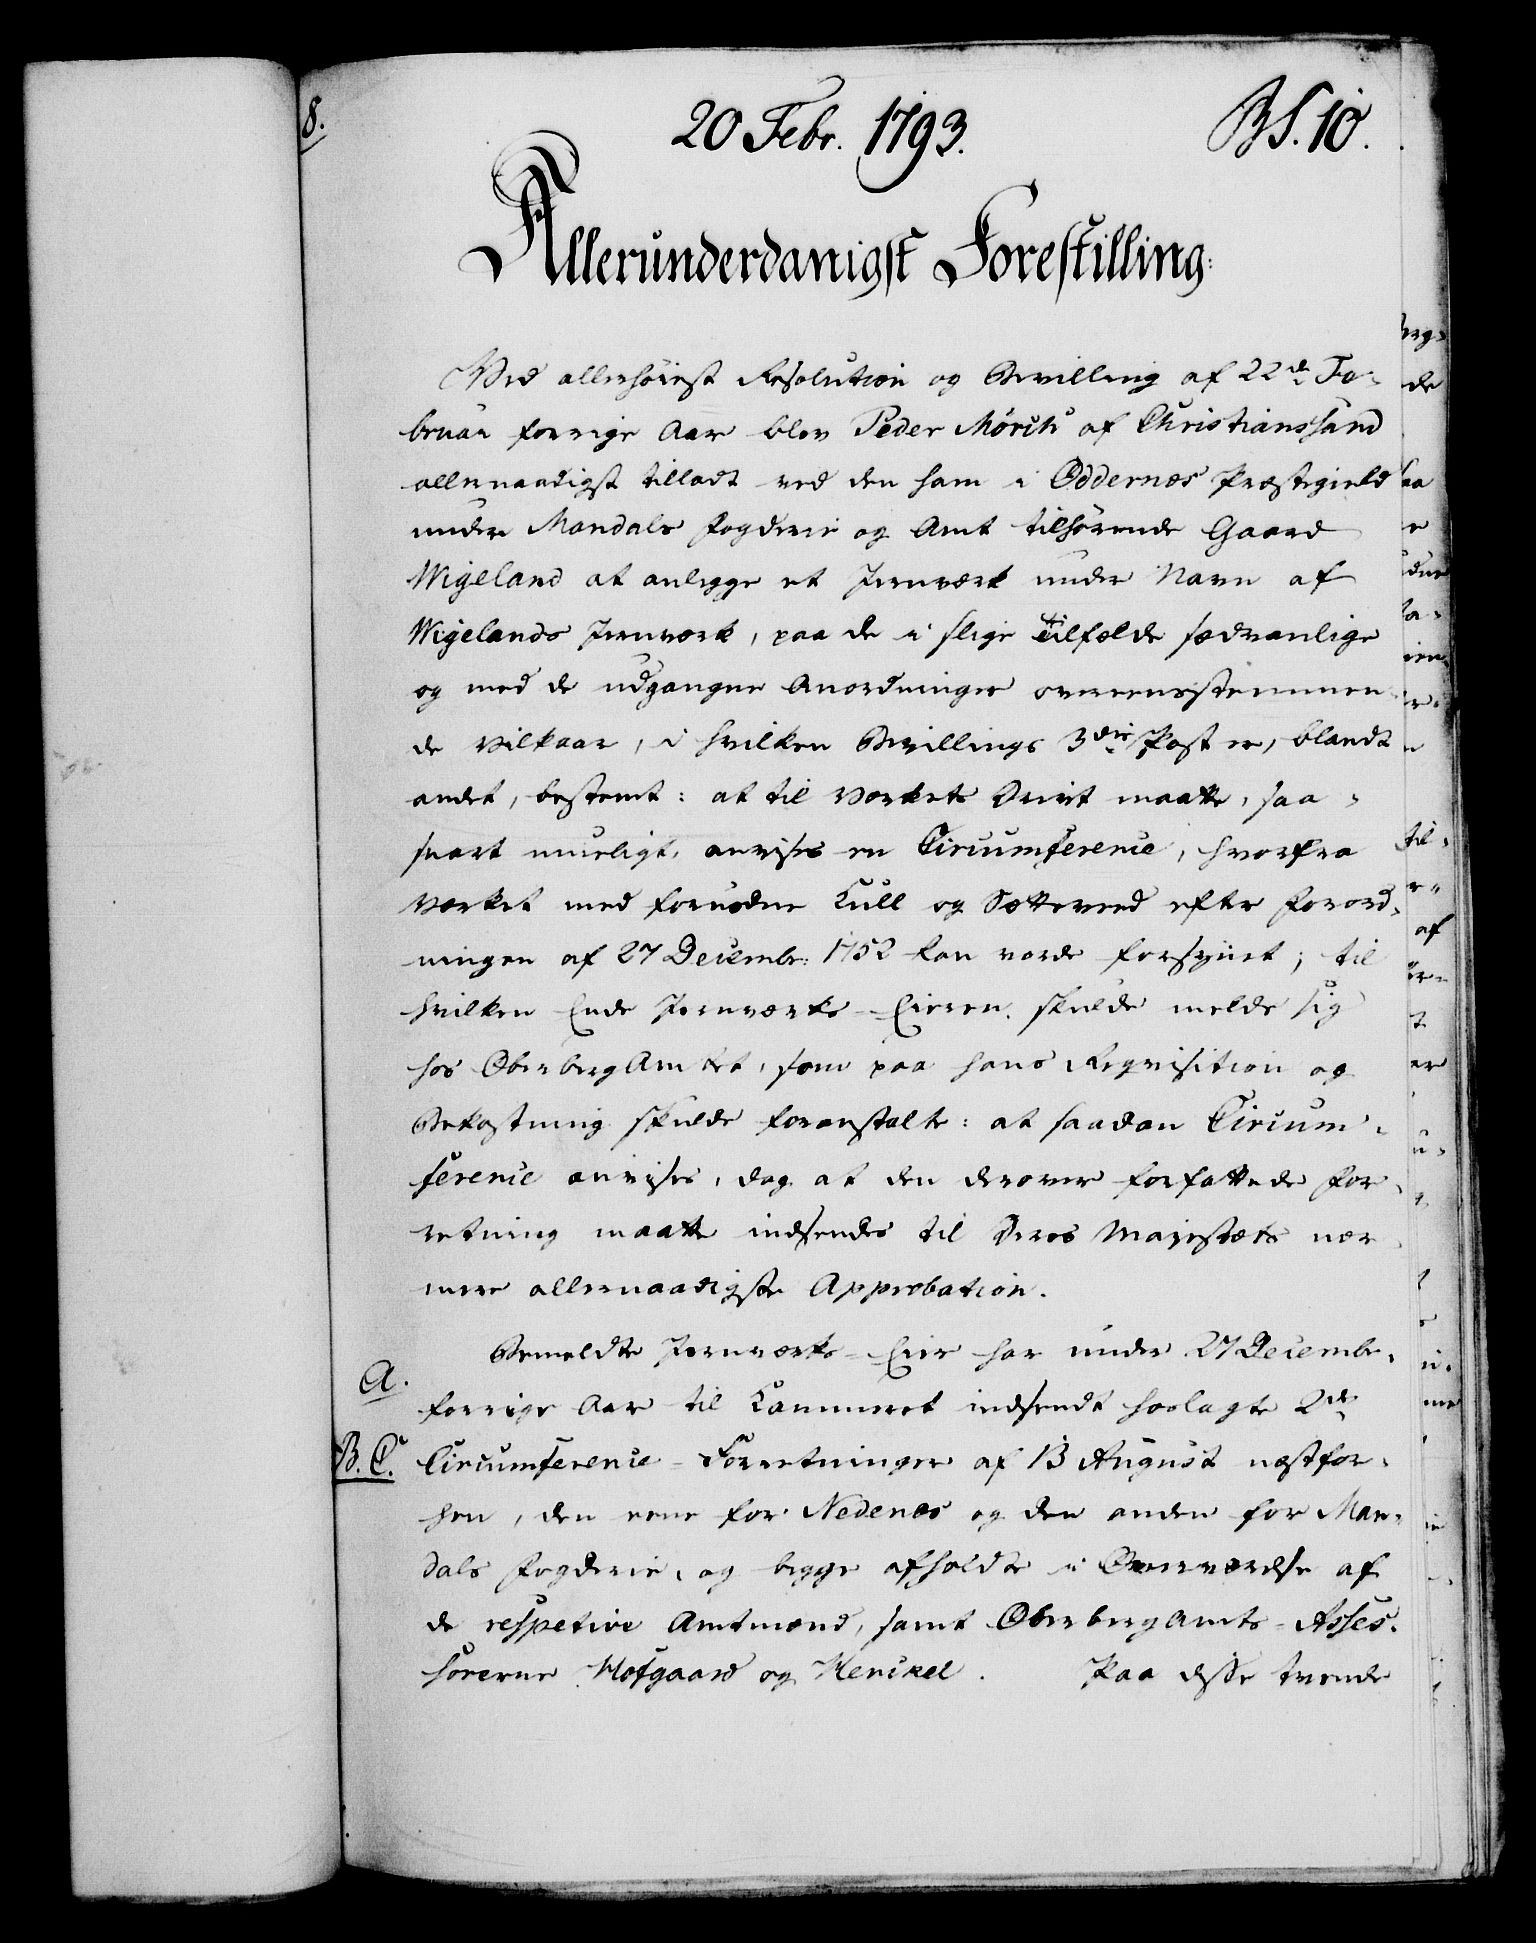 8.
20 Febr. 1793.
BS. 10.
Allerunderdanigst Forestilling:
Ved allerhöiest Resolution og Bevilling af 22de Fe-
bruar forrige Aar blev Peder Mörch af Christianssand
allernaadigst tilladt ved den ham i Oddernæs Præstegield
under Mandals Fogderie og Amt tilhörende Gaard
Wigeland at anlegge et Jernværk under Navn af
Wigelands Jernværk, paa de i slige Tilfælde sædvanlige
og med de udgangne Anordninger overeensstemmen-
de Vilkaar, i hvilken Bevillings 3die Post er, blandt
andet, bestemt: at til Værkets Drivt maatte, saa-
snart mueligt, anvises en Circumference, hvorfra
Værket med fornöden Kull og Sætteveed efter Forord-
ningen af 27 Decembr: 1752 kan vorde forsÿnet; til
hvilken Ende Jernværks-Eieren skulde melde sig
hos OberbergAmtet, som paa hans Reqvisition og
Bekostning skulde foranstalte: at saadan Circum-
ference anvises, dog at den derover forfattede For-
retning maatte indsendes til Deres Majestæts nær-
mere allernaadigste Approbation.
Bemeldte Jernværks-Eier har under 27 Decembr.
A.
forrige Aar til Kammeret indsendt hoslagte 2de
B. C.
Circumference-Forretninger af 13 August næstfor-
hen, den eene for Nedenæs og den anden for Man-
dals Fogderie, og begge afholdte i Overværelse af
de respetive Amtmænd, samt OberbergAmts-Asses-
sorerne Hofgaard og Henckel. Paa disse tvende